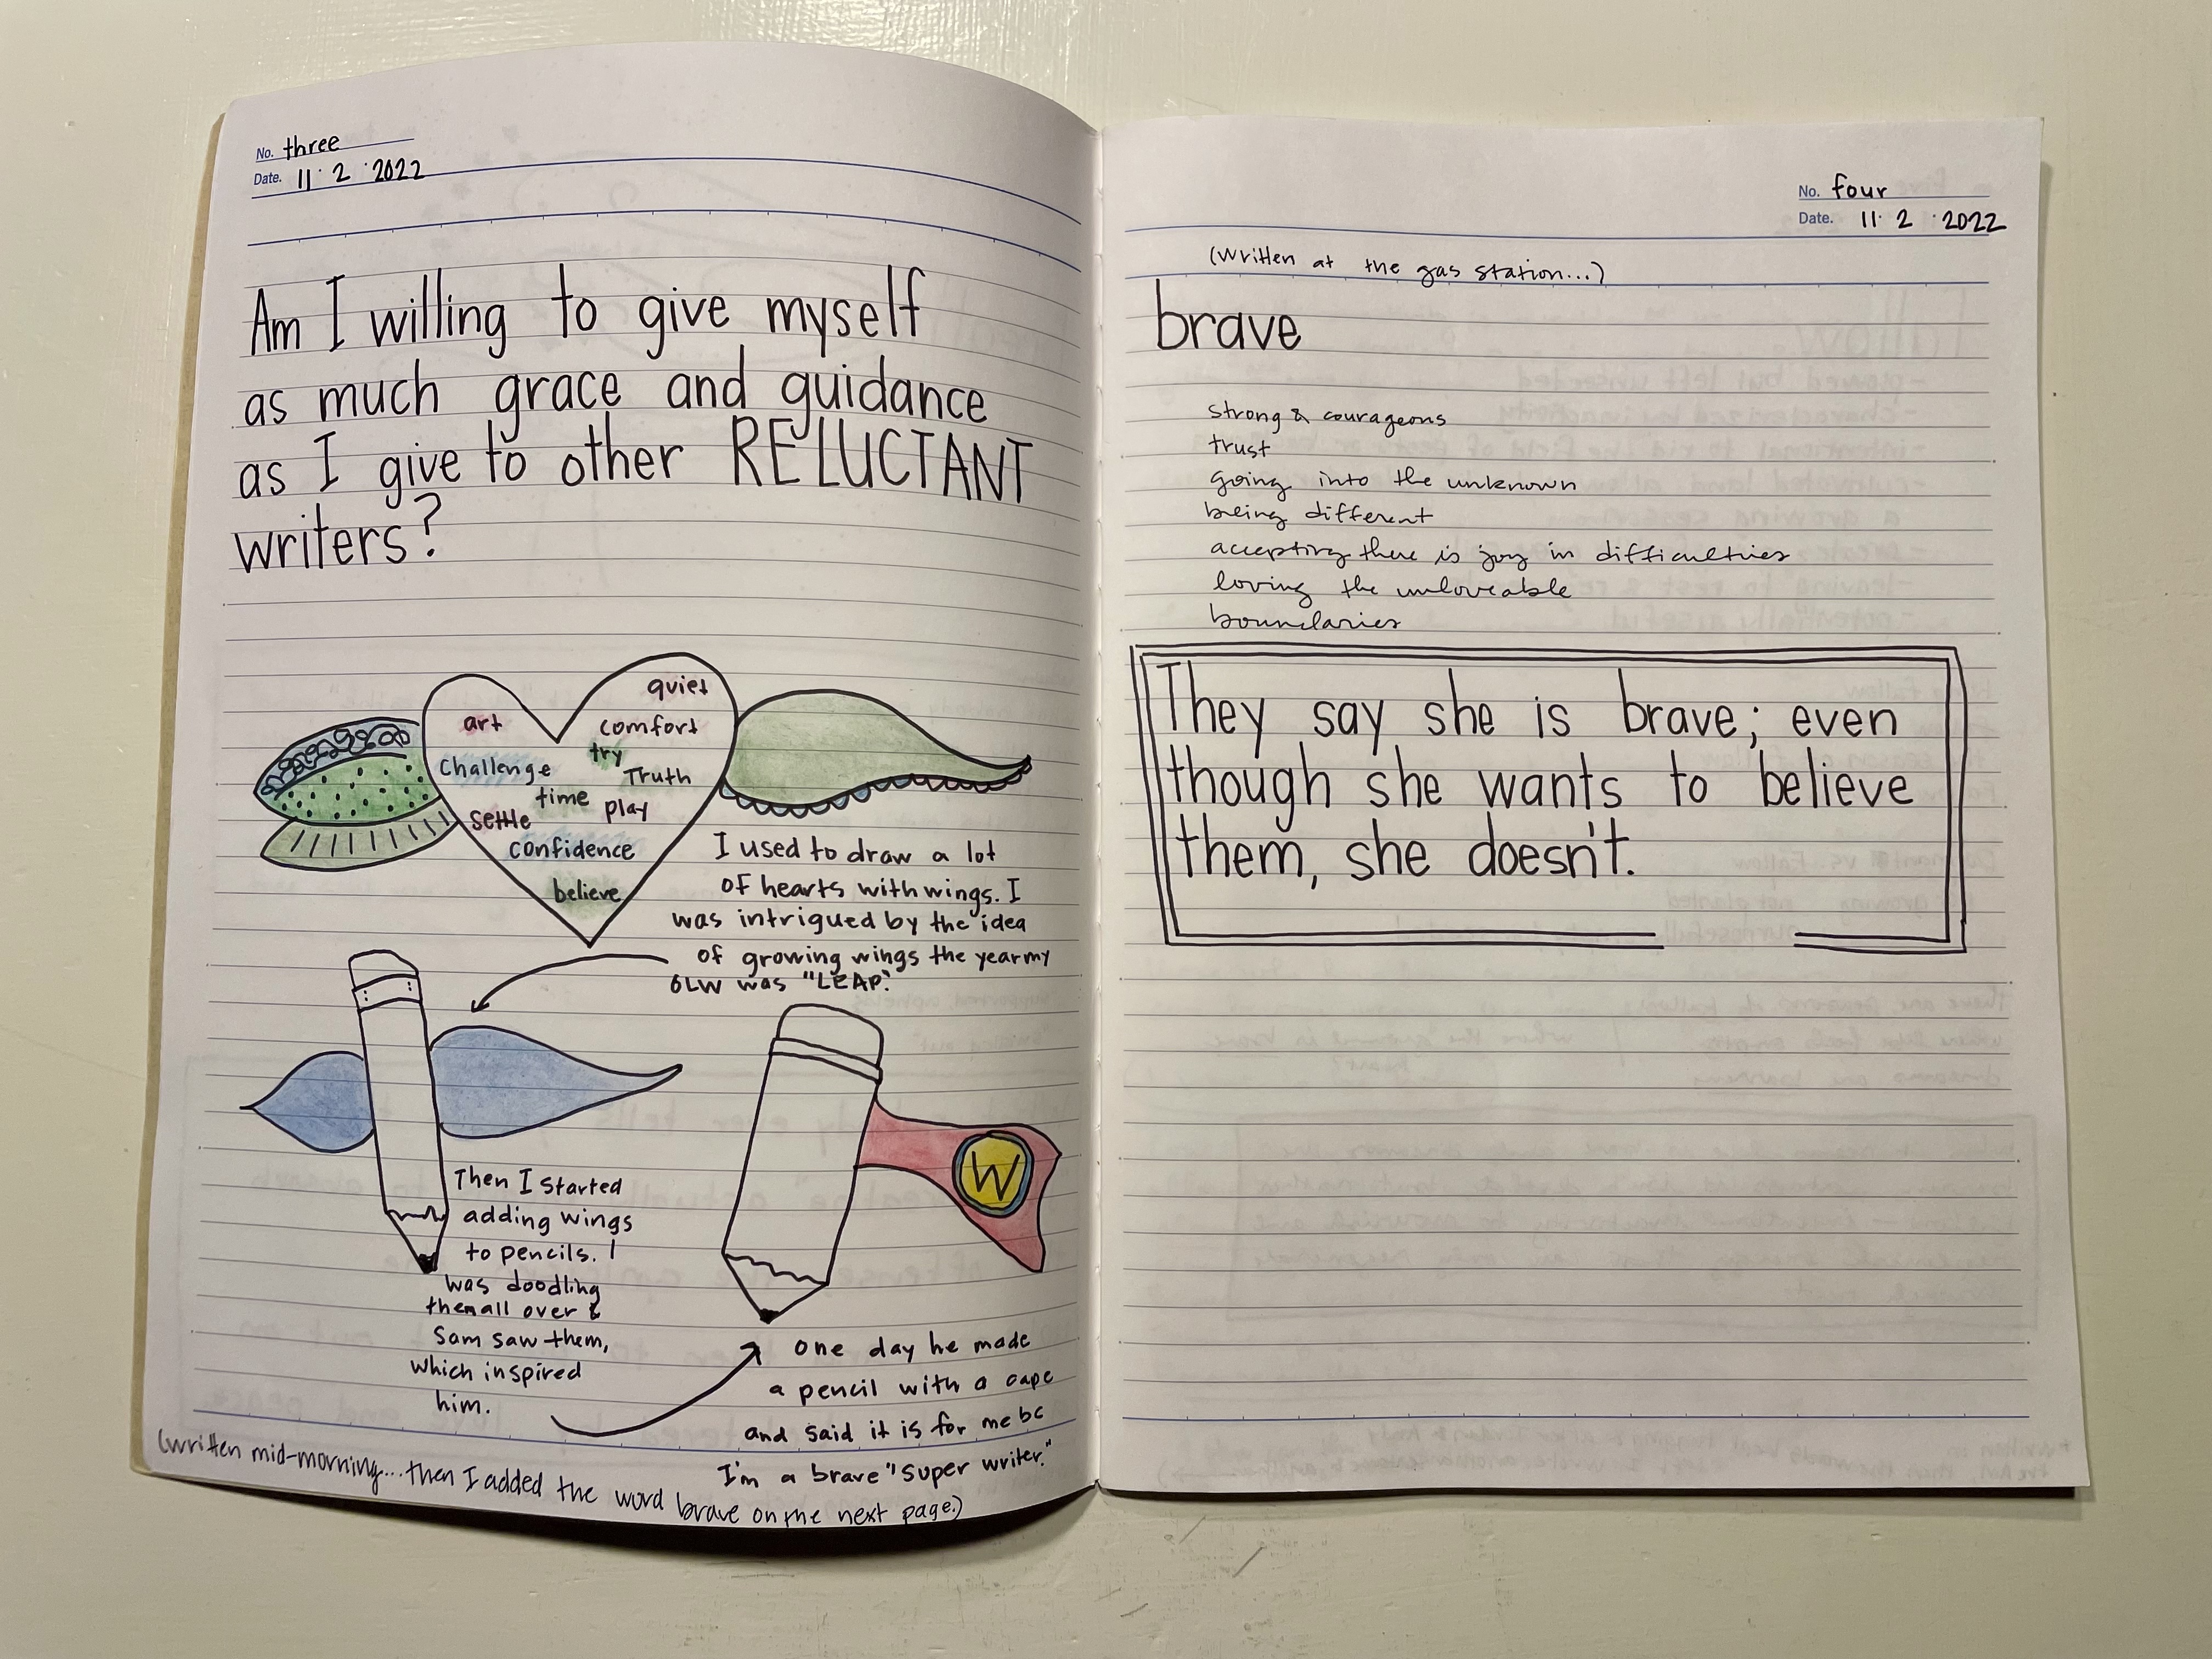 No. three
Date. 11 · 2 · 2022
Am I willing to give myself
as much grace and guidance
as I give to other RELUCTANT
writers?
quiet
art
comfort
try
Challenge
Truth
time
play
settle
confidence
believe
I used to draw a lot
of hearts with wings. I
was intrigued by the idea
of growing wings the year my
OLW was "LEAP."
Then I started
adding wings
to pencils. I
was doodling
them all over &
Sam saw them,
which inspired
him.
W
one day he made
a pencil with a cape
and said it is for me bc
I'm a brave "super writer."
(written mid-morning... then I added the word brave on the next page.)
No. four
Date. 11 · 2 · 2022
(written at the gas station...)
brave
strong & courageous
trust
going into the unknown
being different
accepting there is joy in difficulties
loving the unloveable
boundaries
They say she is brave; even
though she wants to believe
them, she doesn't.